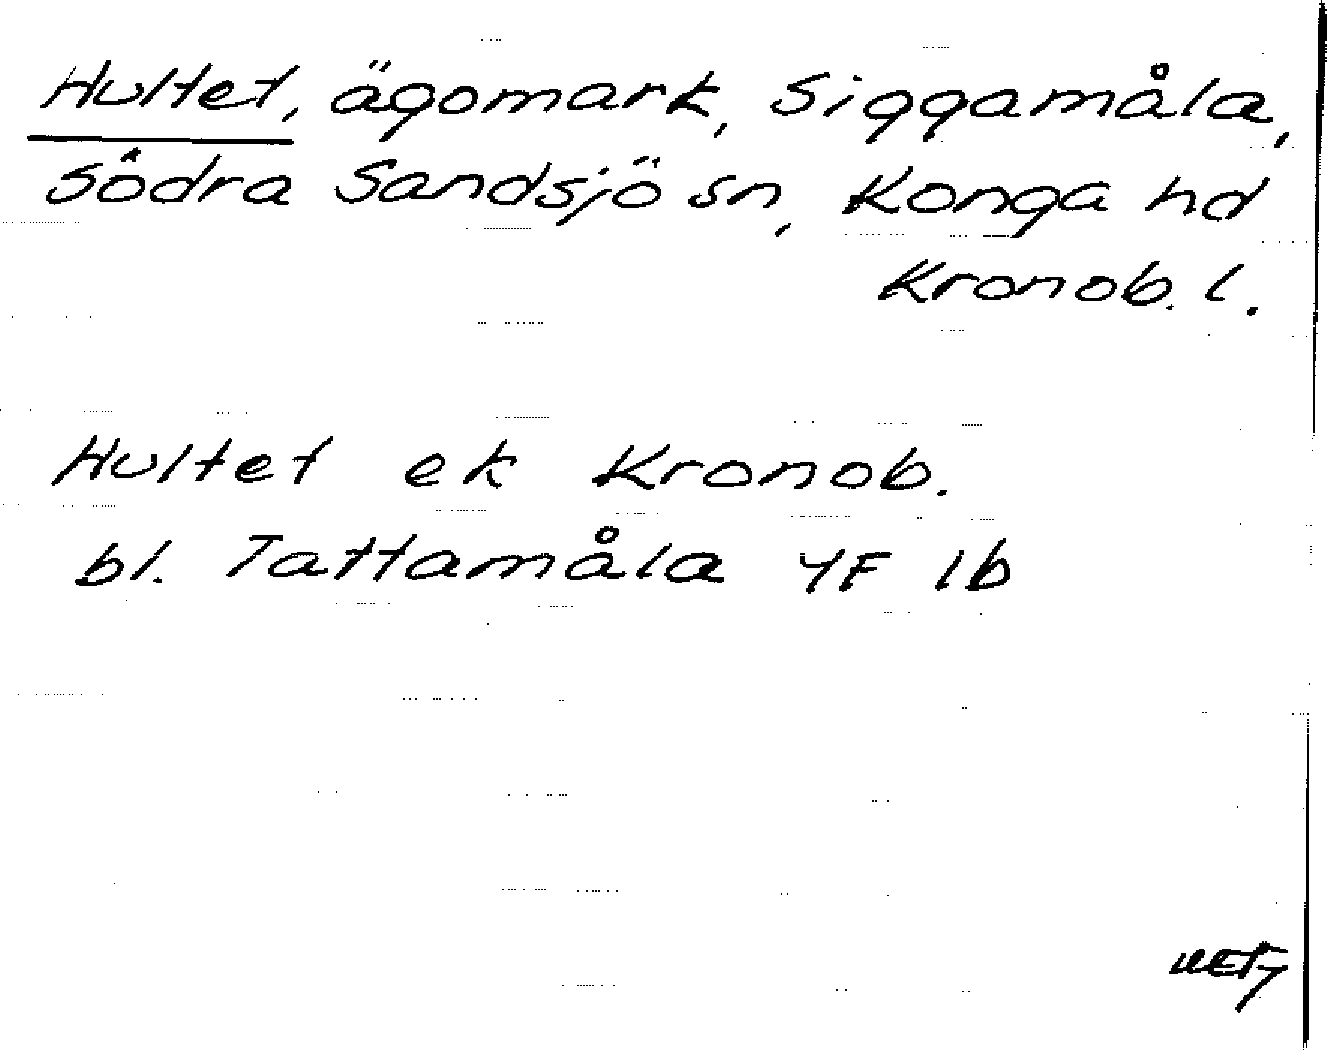 Hultet, ägomark, Siggamåla,
Södra Sandsjö sn, Konga hd
Kronob. l.
Hultet ek Kronob.
bl. Tattamåla 4F 1b